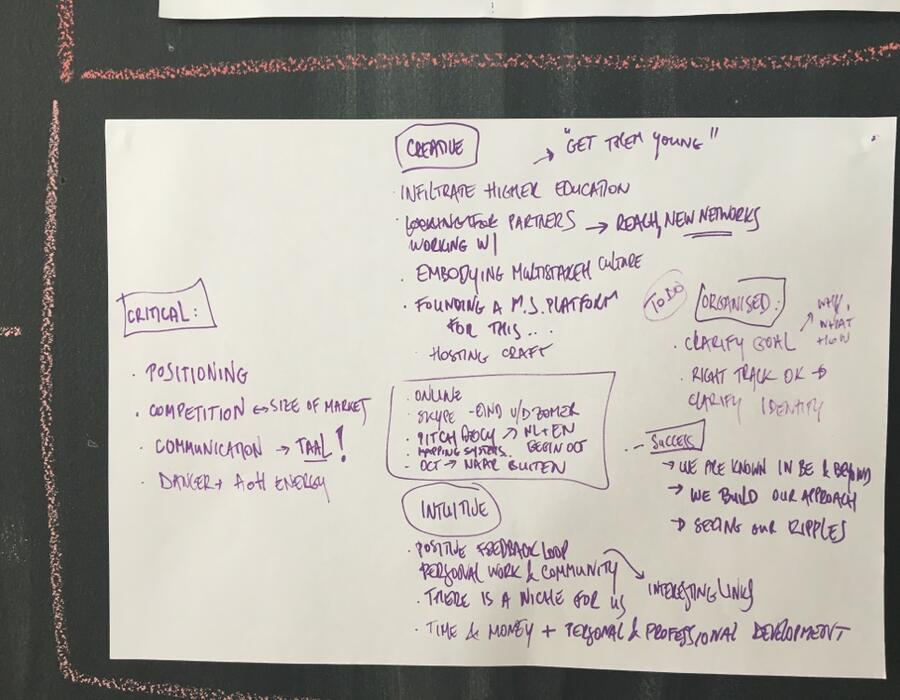 CREATIVE
→ "GET THEM YOUNG"
· INFILTRATE HIGHER EDUCATION
· LOOKING FOR PARTNERS → REACH, NEW NETWORKS
WORKING W/
· EMBODYING MULTISTAKEH CULTURE
· FOUNDING A M.S. PLATFORM
FOR THIS...
HOSTING CRAFT
CRITICAL:
· POSITIONING
· COMPETITION ↔ SIZE OF MARKET
· COMMUNICATION → TAAL!
· DANGER → AOH ENERGY
· ONLINE
· SKYPE - EIND V/D ZOMER
· PITCH → NL + EN
· MAPPING SYSTEMS. BEGIN OCT
- OCT → NAAR BUITEN
TO DO
ORGANISED:
· CLARIFY GOAL ↗ WHY,
WHAT
HOW
· RIGHT TRACK OK →
CLARIFY IDENTITY
... SUCCESS
→ WE ARE KNOWN IN BE & BEYOND
→ WE BUILD OUR APPROACH
→ SEEING OUR RIPPLES
INTUITIVE
· POSITIVE FEEDBACK LOOP
PERSONAL WORK & COMMUNITY
INTERESTING LINKS
· THERE IS A NICHE FOR US
· TIME & MONEY + PERSONAL & PROFESSIONAL DEVELOPMENT